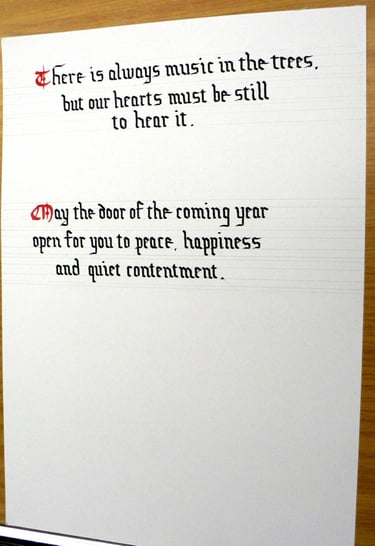 There is always music in the trees.
but our hearts must be still
to hear it.
May the door of the coming year
open for you to peace, happiness
and quiet contentment.